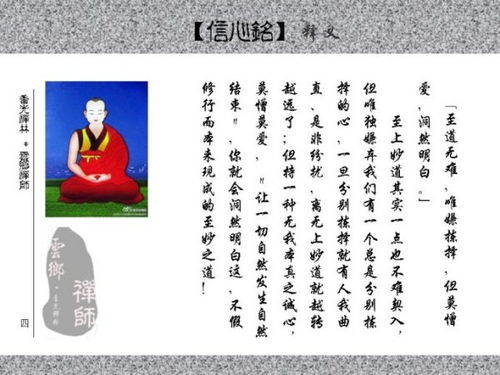 【信心銘】释义
「至道无难，唯嫌拣择，但莫憎
爱，洞然明白。」
至上妙道其实一点也不难契入，
但唯独嫌弃我们有一个总是分别拣
择的心，一旦分别拣择就有人我曲
直、是非纷扰，离无上妙道就越转
越远了；但持一种无我本真之诚心，
莫憎莫爱，〃让一切自然发生自然
结束〃，你就会洞然明白这，不假
修行而本来现成的至妙之道！
香光禪林 * 雲鄉禪師
雲鄉
禪師
四